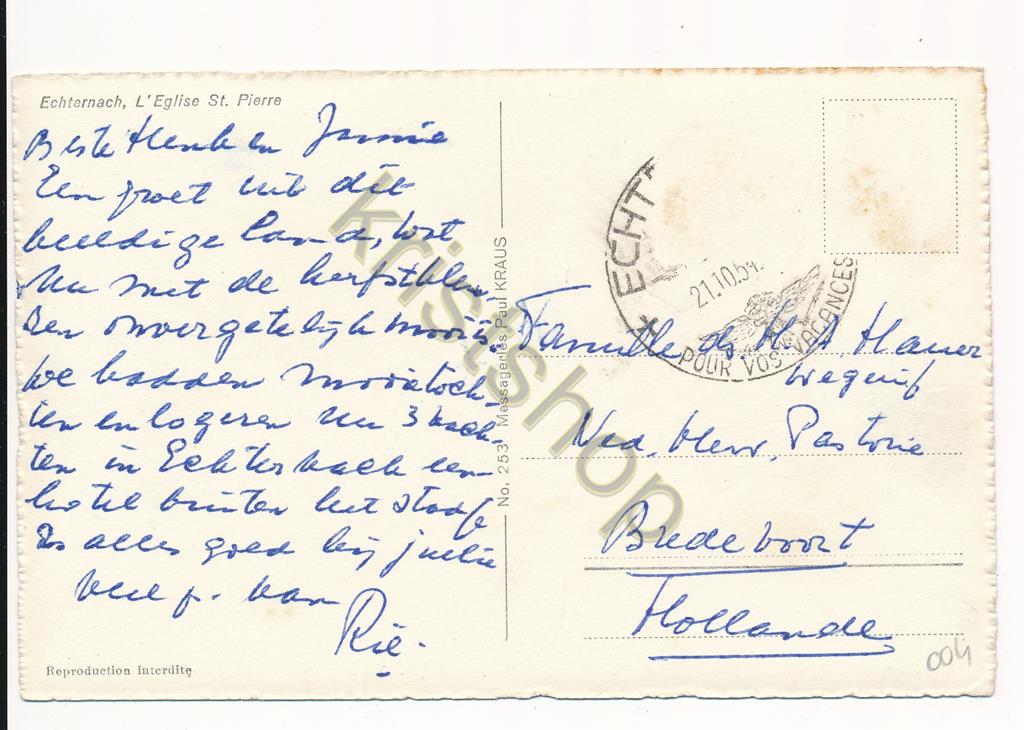 Echternach, L'Eglise St. Pierre
Beste Henk en Jannie
Een groet uit dit
beeldige land, wat
nu met de herfstbla-
den onvergetelijk mooi is.
We hadden mooie toch-
ten en logeren nu 3 nach-
ten in Echternach een
hotel buiten het stadje
Is alles goed bij jullie
veel gr. van
Rie.
Reproduction interdite
No. 253 Messageries Paul KRAUS
ECHT
21.10.54
POUR VOS VACANCES
Familie ds H. A. Hauer
Weguif
Ned. Herv. Pastorie
Bredevoort
Hollande
004
kristshop